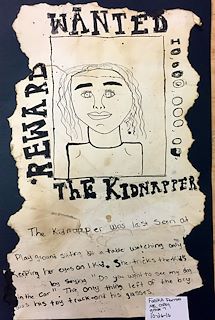 WANTED
REWARD
10,000,000.00
The Kidnapper
The Kidnapper was last seen at
Playground siting at a table watching only
keeping her eyes on 1 kid. She tricks the kids
by saying "Do you want to see my dog
in the car" The only thing left of the boy
was his toy truck and his glasses.